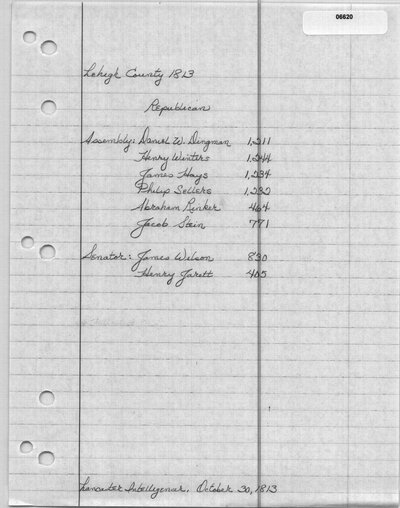 06620
Lehigh County 1813
Republican
Assembly: Daniel W. Dingman 1,211
Henry Winters 1,244
James Hays 1,234
Philip Sellers 1,232
Abraham Rinker 464
Jacob Stein 771
Senator: James Wilson 830
Henry Jarett 405
Lancaster Intelligencer. October 30, 1813